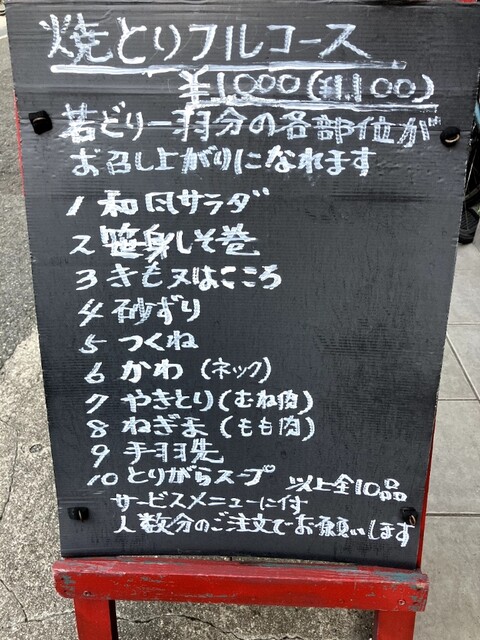 焼とりフルコース
¥1000(¥1.100)
若どり一羽分の各部位が
お召し上がりになれます
1 和風サラダ
2 笹身しそ巻
3 きも又はこころ
4 砂ずり
5 つくね
6 かわ(ネック)
7 やきとり(むね肉)
8 ねぎま(もも肉)
9 手羽先
10 とりがらスープ 以上全10品
サービスメニューに付
人数分のご注文でお願いします